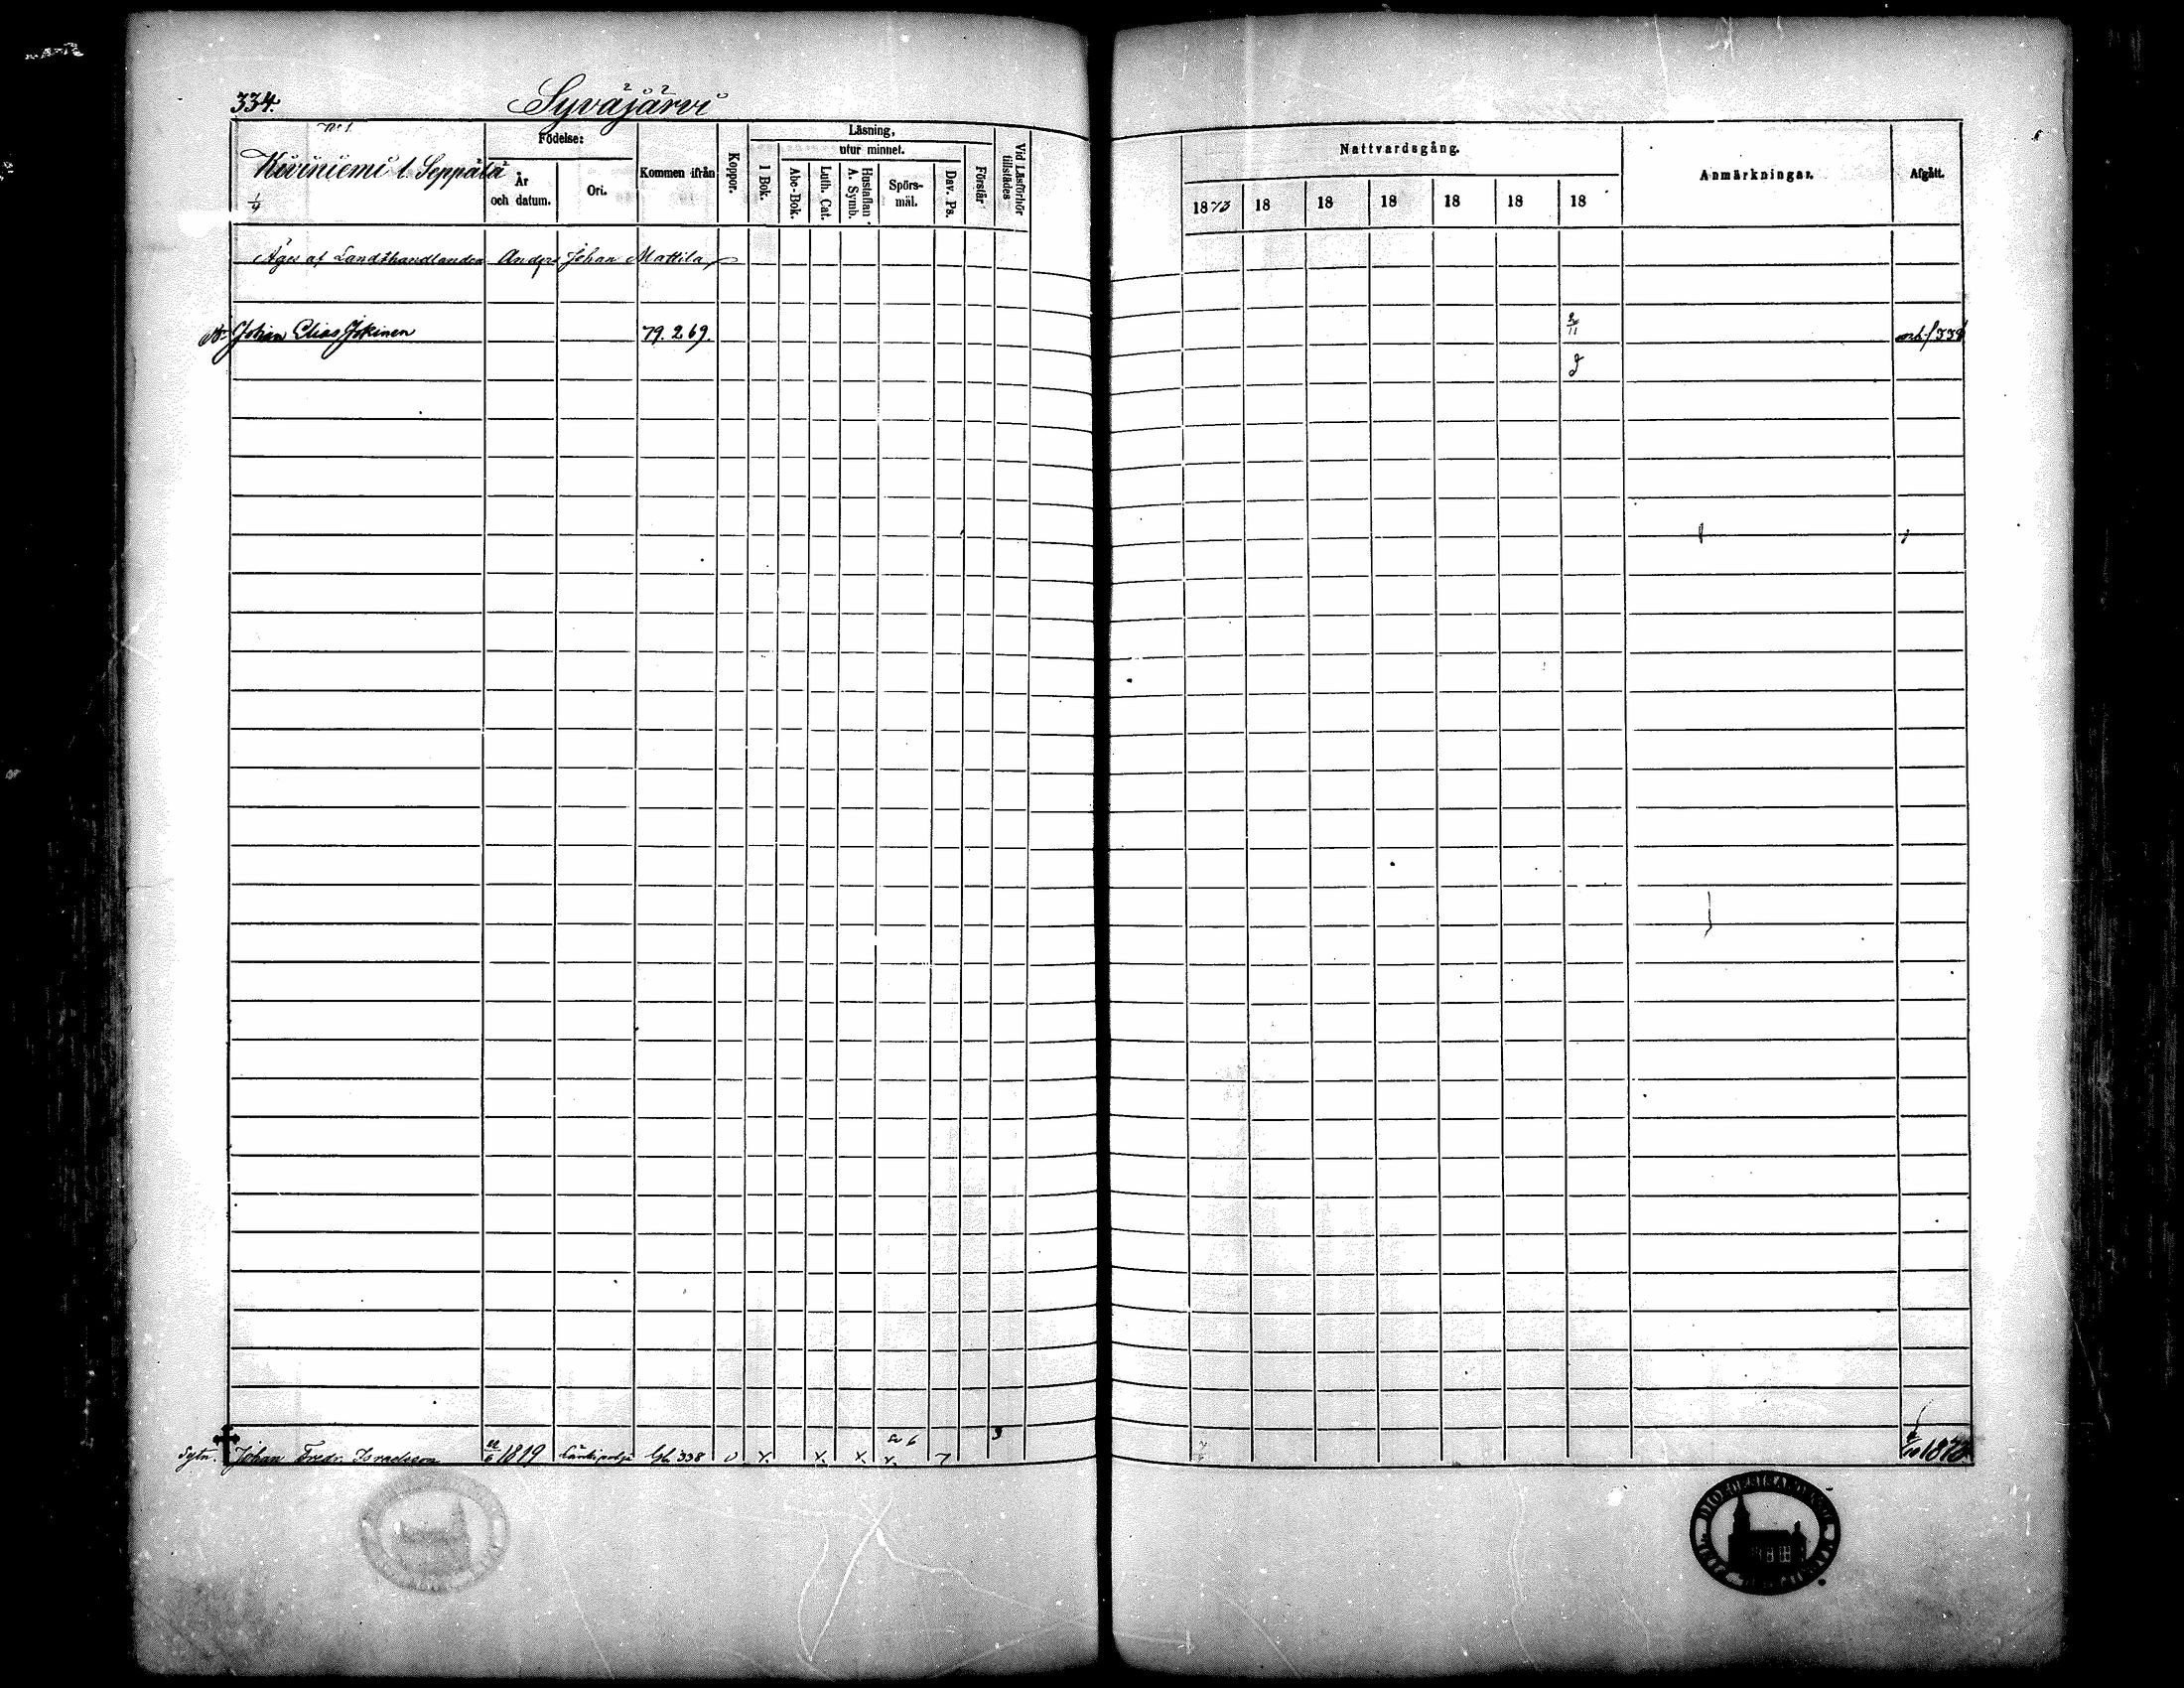 334.
Syväjärvi
N:o 1.
Kiviniemi l. Seppälä
1/4
Födelse:
År och datum.
Ort.
Kommen ifrån
Koppor.
Läsning,
1 Bok.
utur minnet.
Abc-Bok.
Luth. Cat.
Hustaflan A. Symb.
Spörsmål.
Dav. Ps.
Förstår
Vid Läsförhör tillstädes
Nattvardsgång.
1873 18 18 18 18 18 18
Anmärkningar.
Afgått.
Äges af Landthandlanden Anders Johan Mattila
Johan Elias Jokinen 79. 269. 2/11 338
Sytn. Johan Fredr. Israelsson 22/6 1819 Länkipohja 338 1873.